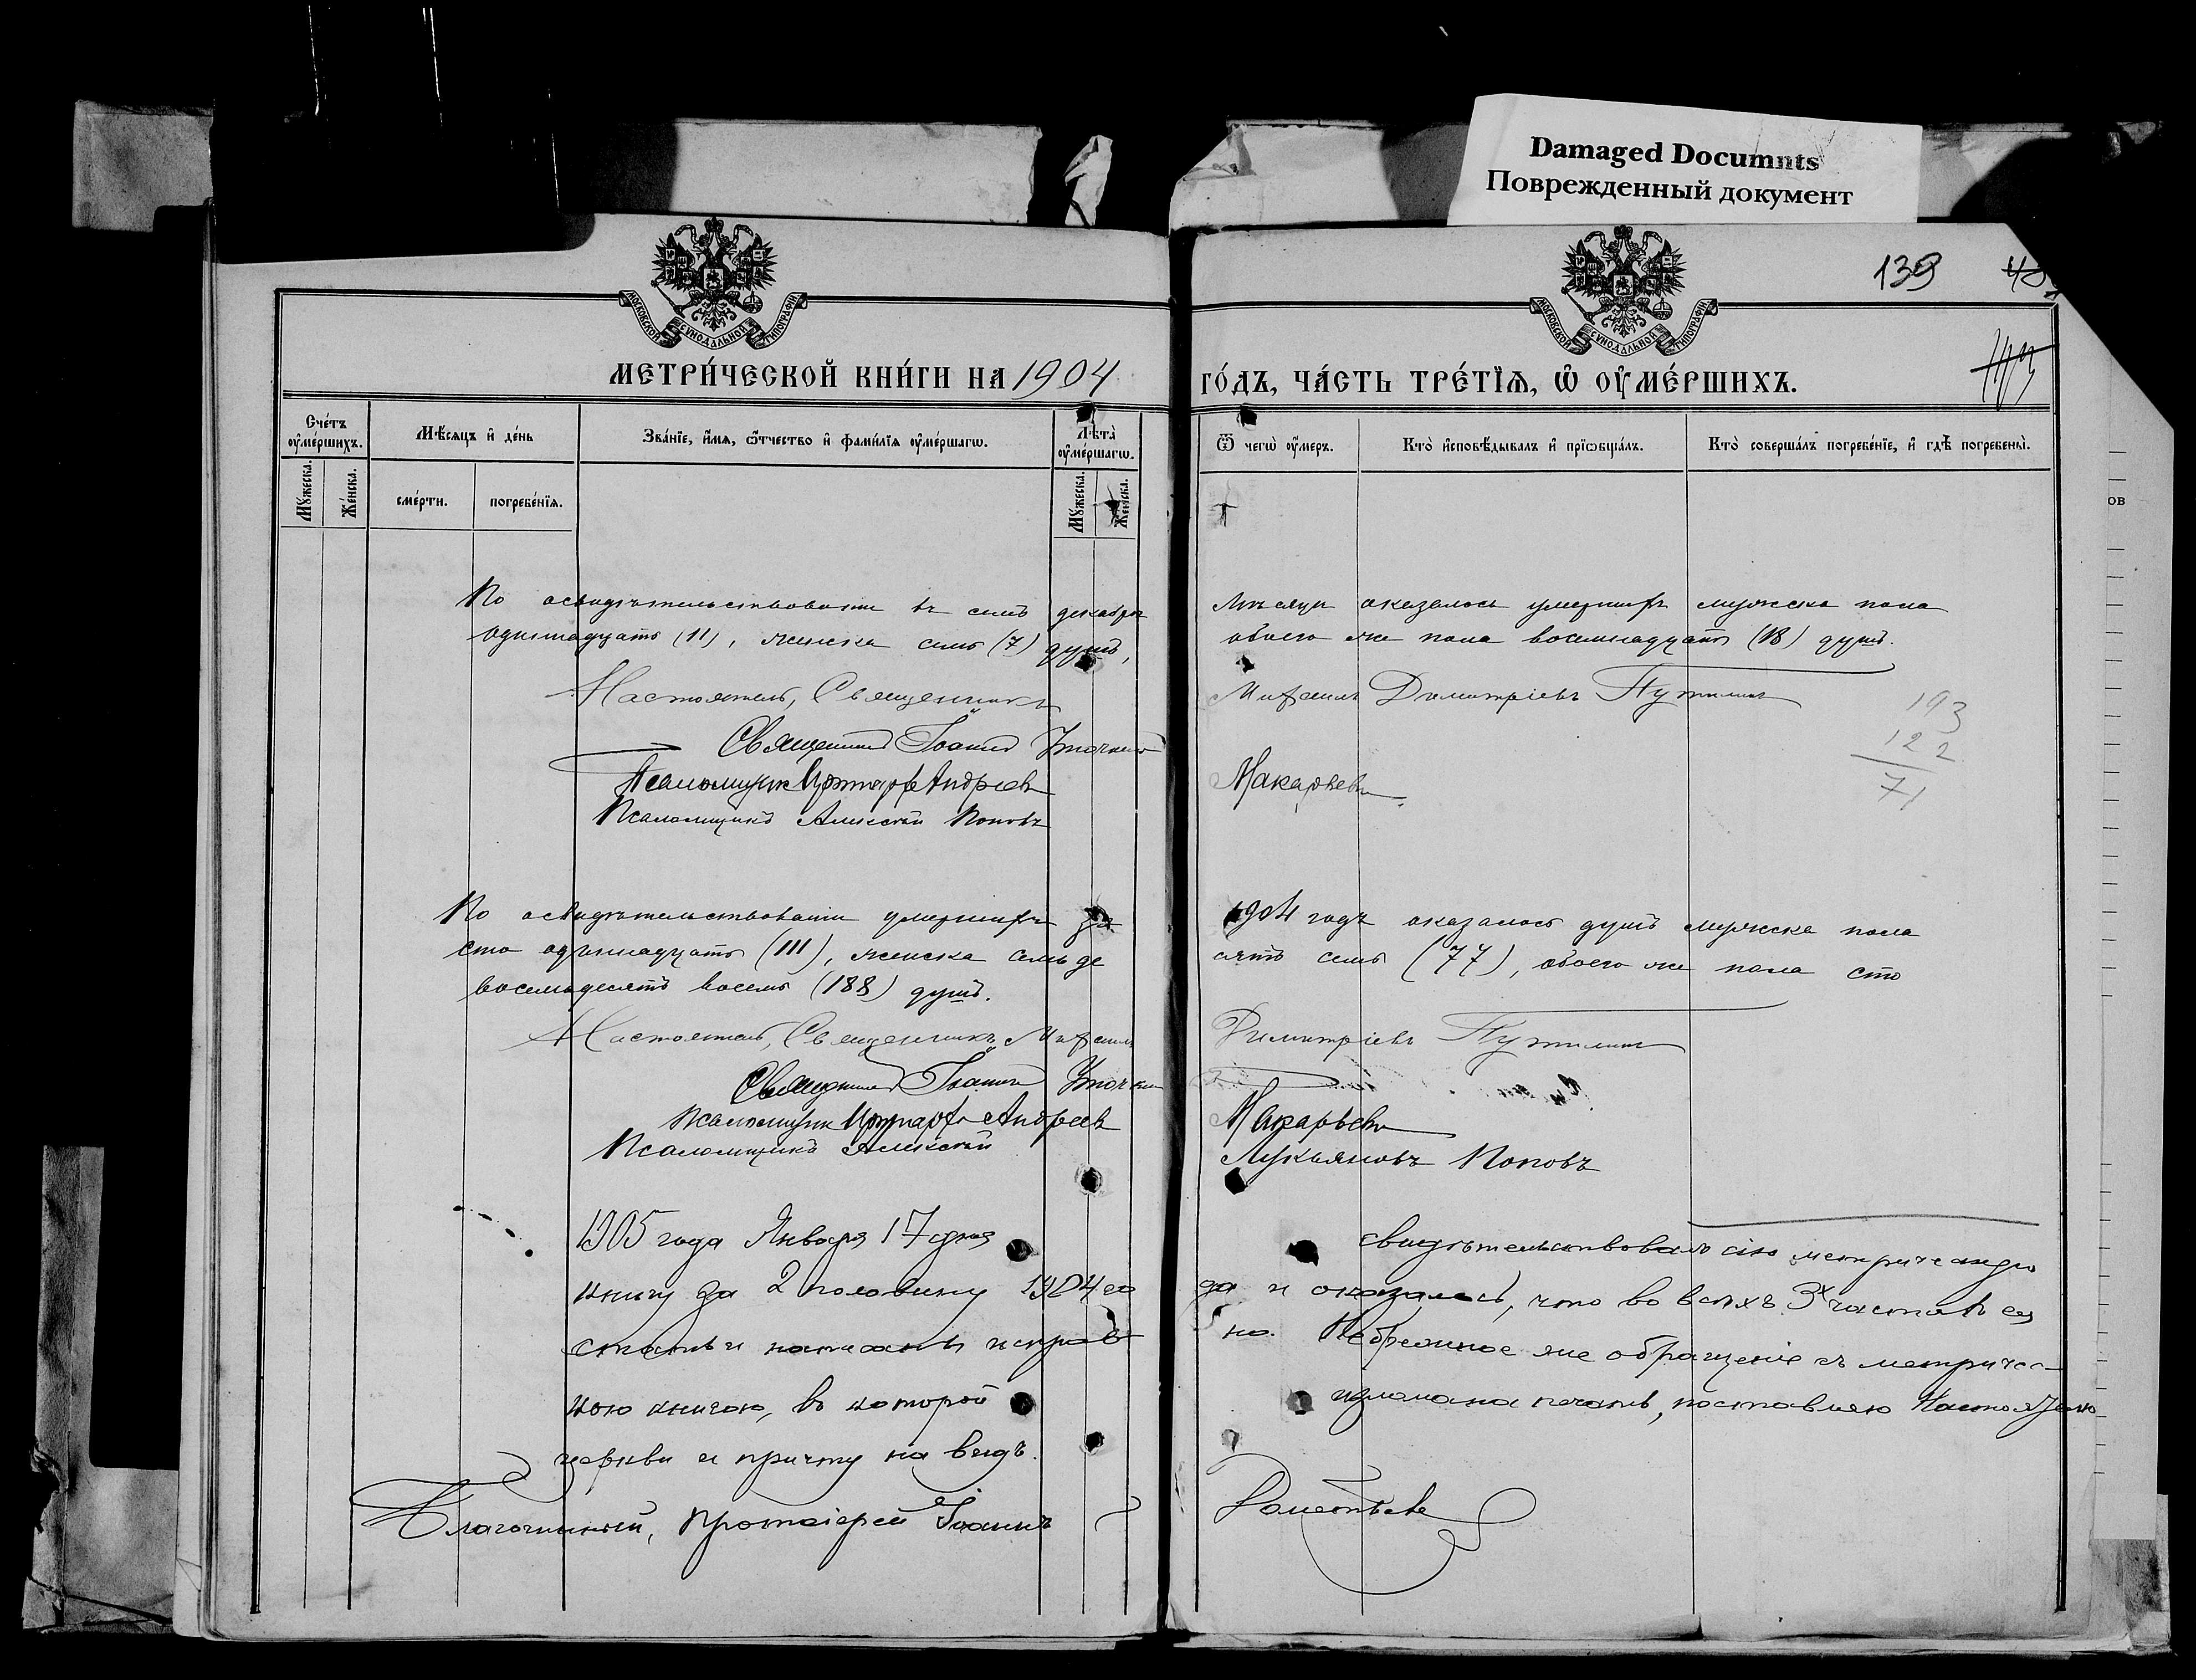 Damaged Documnts
Поврежденный документ
МОСКОВСКОЙ СУНОДАЛЬНОЙ ТИПОГРАФІИ
МОСКОВСКОЙ СУНОДАЛЬНОЙ ТИПОГРАФІИ
139
МЕТРИ́ЧЕСКОЙ КНИ́ГИ НА 1904 ГО́ДЪ, ЧА́СТЬ ТРЕ́ТЇѦ, Ѡ҆ ОУ҆МЕ́РШИХЪ.
Сче́тъ оу҆ме́ршихъ.
Мѣ́сяцъ и҆ де́нь
Зва́нїе, и҆́мя, ѻ҆́тчество и҆ фами́лїя оу҆ме́ршагѡ.
Лѣта̀ оу҆ме́ршагѡ.
Ѿ чегѡ̀ оу҆́меръ.
Кто̀ и҆сповѣ́дывалъ и҆ прїѡбща́лъ.
Кто̀ соверша́лъ погребе́нїе, и҆ гдѣ̀ погребены̀.
Мꙋ́жеска. Же́нска. сме́рти. погребе́нїя. Мꙋ́жеска. Же́нска.
По освидѣтельствованіи въ семъ декабрѣ мѣсяцѣ оказалось умершихъ мужеска пола
одиннадцать (11), женска семь (7) душъ, обоего же пола восемнадцать (18) душъ.
Настоятель, Священникъ Михаилъ Димитріевъ Путилинъ
193
Священникъ Іоаннъ
122
Псаломщикъ Андреевъ Макарьевъ
71
Псаломщикъ Алексѣй Поповъ
По освидѣтельствованіи умершихъ за 1904 годъ оказалось душъ мужеска пола
сто одиннадцать (111), женска семьдесятъ семь (77), обоего же пола сто
восемьдесятъ восемь (188) душъ.
Настоятель, Священникъ Михаилъ Димитріевъ Путилинъ
Священникъ Іоаннъ
Псаломщикъ Андреевъ Макарьевъ
Псаломщикъ Алексѣй Лукьяновъ Поповъ
1905 года Января 17 дня свидѣтельствовалъ сію метрическую
книгу за 2 половину 1904 года и оказалось, что во всѣхъ 3х частяхъ ея
статьи написаны исправно. Небрежное же обращеніе съ метричес-
кою книгою, въ которой изломана печать, поставляю Настоятелю
церкви и причту на видъ.
Благочинный, Протоіерей Іоаннъ